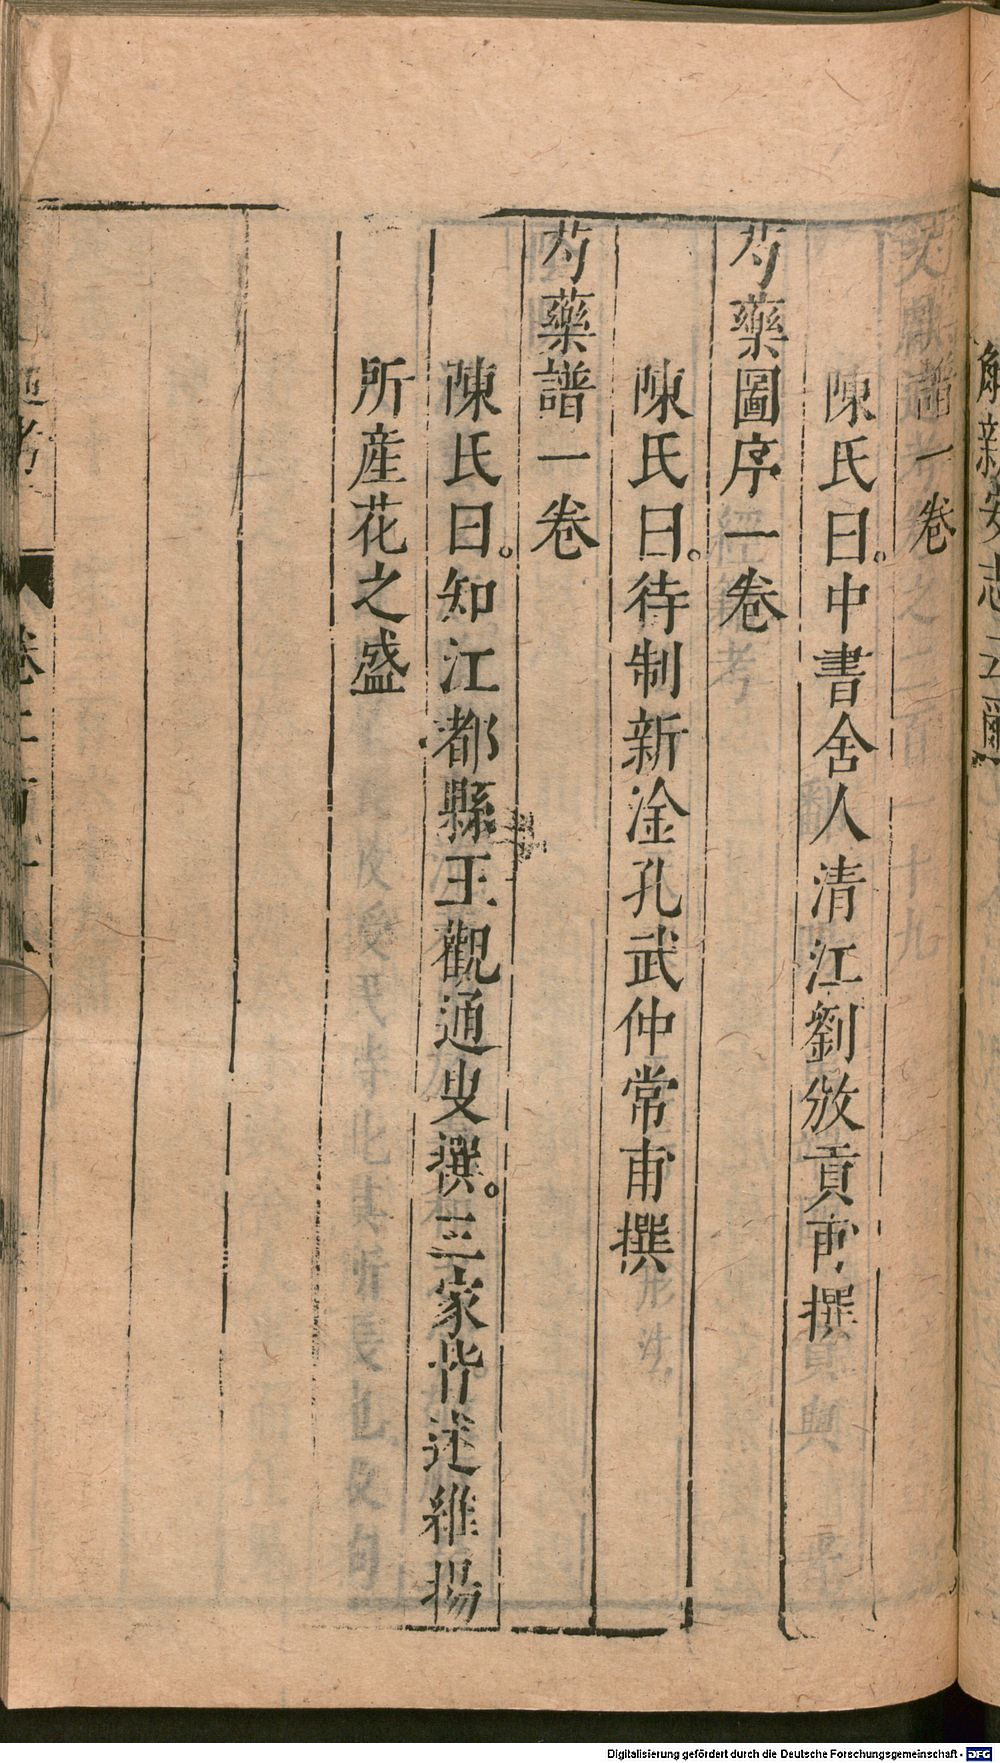 譜一卷
陳氏曰中書舍人清江劉攽貢甫撰
芍藥圖序一卷
陳氏曰待制新淦孔武仲常甫撰
芍藥譜一卷
陳氏曰知江都縣王觀通叟撰三家皆述維揚
所産花之盛
Digitalisierung gefördert durch die Deutsche Forschungsgemeinschaft - DFG